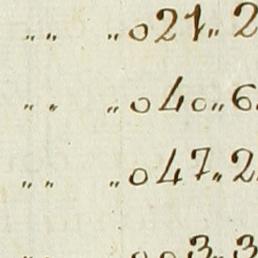 〃 〃 〃 021〃 2
〃 〃 〃 040〃 6
〃 〃 〃 047〃 2
〃 〃 003〃 3